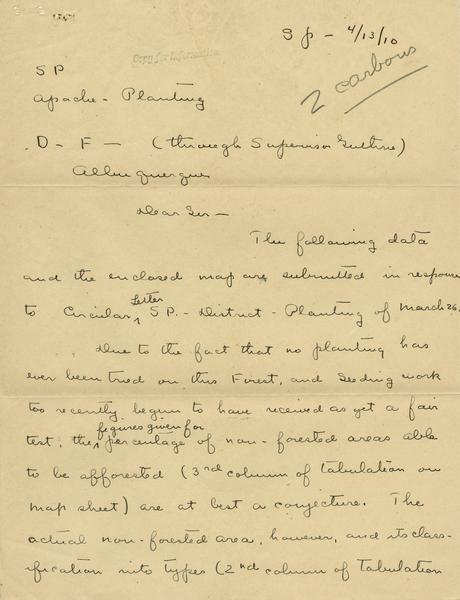 Sp - 4/13/10
Copy for Information
2 carbons
SP
Apache - Planting
D - F - (through Supervisor Guthrie)
Albuquerque
Dear Sir -
The following data
and the enclosed map are submitted in response
to Circular Letter SP. - District - Planting of March 26,
Due to the fact that no planting has
ever been tried on this Forest, and Seeding work
too recently begun to have received as yet a fair
test, the figures given for percentage of non-forested areas able
to be afforested (3rd column of tabulation on
map sheet) are at best a conjecture. The
actual non-forested area, however, and its class-
ification into types (2nd column of Tabulation